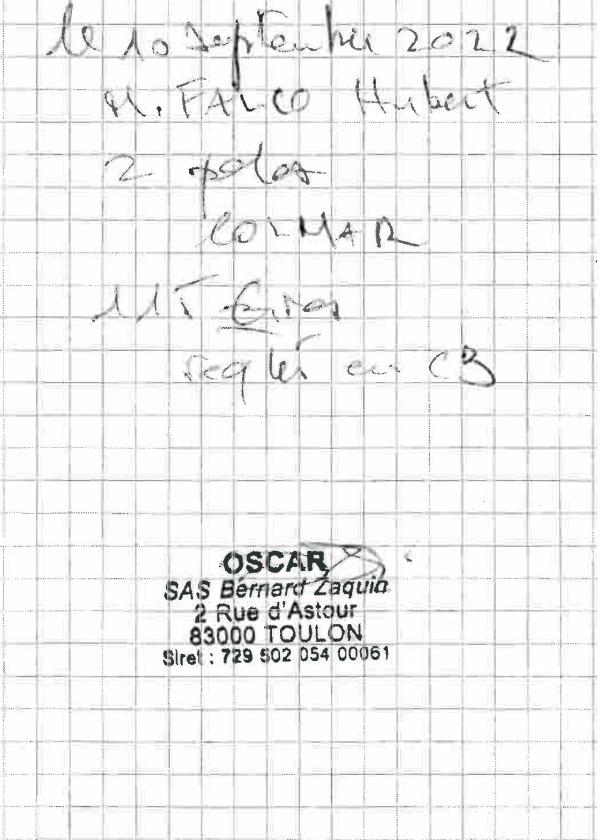 le 10 Septembre 2022
M. FALCO Hubert
2 polos
COLMAR
115 Euros
réglés en CB
OSCAR
SAS Bernard Zaquin
2 Rue d'Astour
83000 TOULON
Siret : 729 502 054 00061